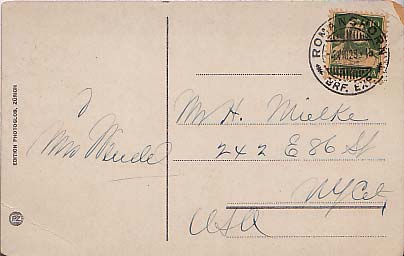 EDITION PHOTOGLOB, ZÜRICH
PZ
ROMANSHORN
BRF. EXP.
Mr H. Mielke
242 E 86 St
NY City
USA